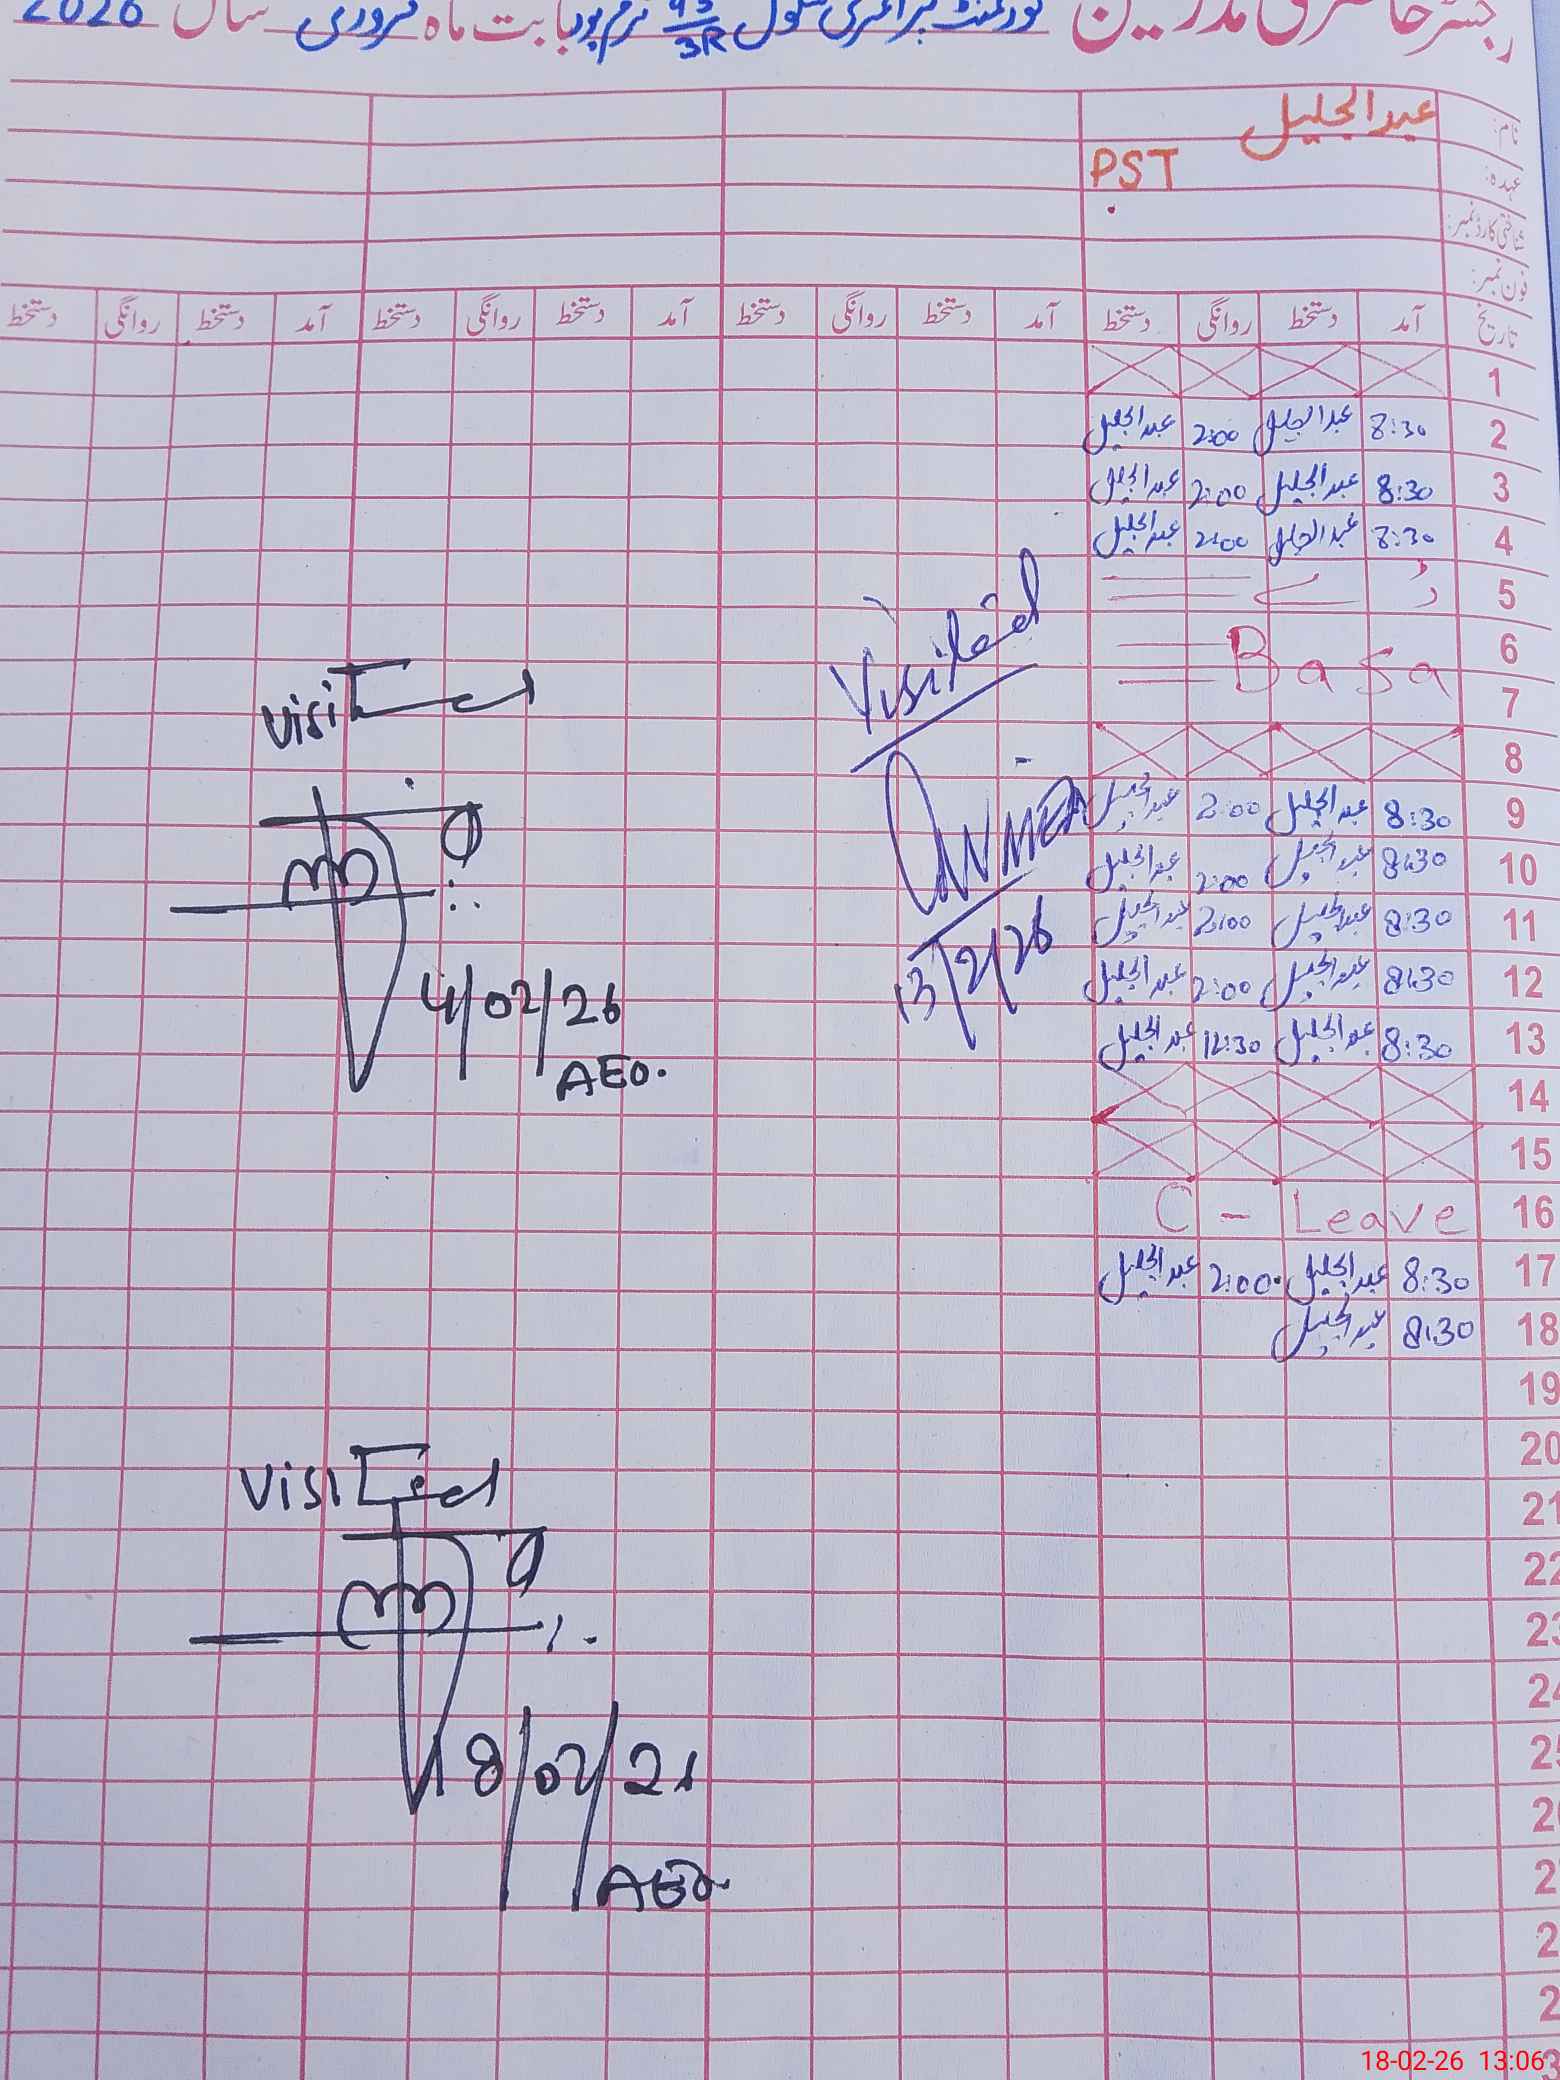 رجسٹر حاضری مدرسین گورنمنٹ پرائمری سکول 93/3R نرم پور بابت ماہ فروری سال 2026
نام: عبدالجلیل
عہدہ: PST
شناختی کارڈ نمبر:
فون نمبر:
تاریخ آمد دستخط روانگی دستخط آمد دستخط روانگی دستخط آمد دستخط روانگی دستخط آمد دستخط روانگی دستخط
1
2 8:30 عبدالجلیل 2:00 عبدالجلیل
3 8:30 عبدالجلیل 2:00 عبدالجلیل
4 8:30 عبدالجلیل 2:00 عبدالجلیل
5
6 Basa
7
8
9 8:30 عبدالجلیل 2:00 عبدالجلیل
10 8:30 عبدالجلیل 2:00 عبدالجلیل
11 8:30 عبدالجلیل 2:00 عبدالجلیل
12 8:30 عبدالجلیل 2:00 عبدالجلیل
13 8:30 عبدالجلیل 12:30 عبدالجلیل
14
15
16 C - Leave
17 8:30 عبدالجلیل 2:00 عبدالجلیل
18 8:30 عبدالجلیل
19
20
21
22
23
24
25
Visited
13/2/26
Visited
4/02/26
AEO.
Visited
18/02/26
AEO.
18-02-26 13:06